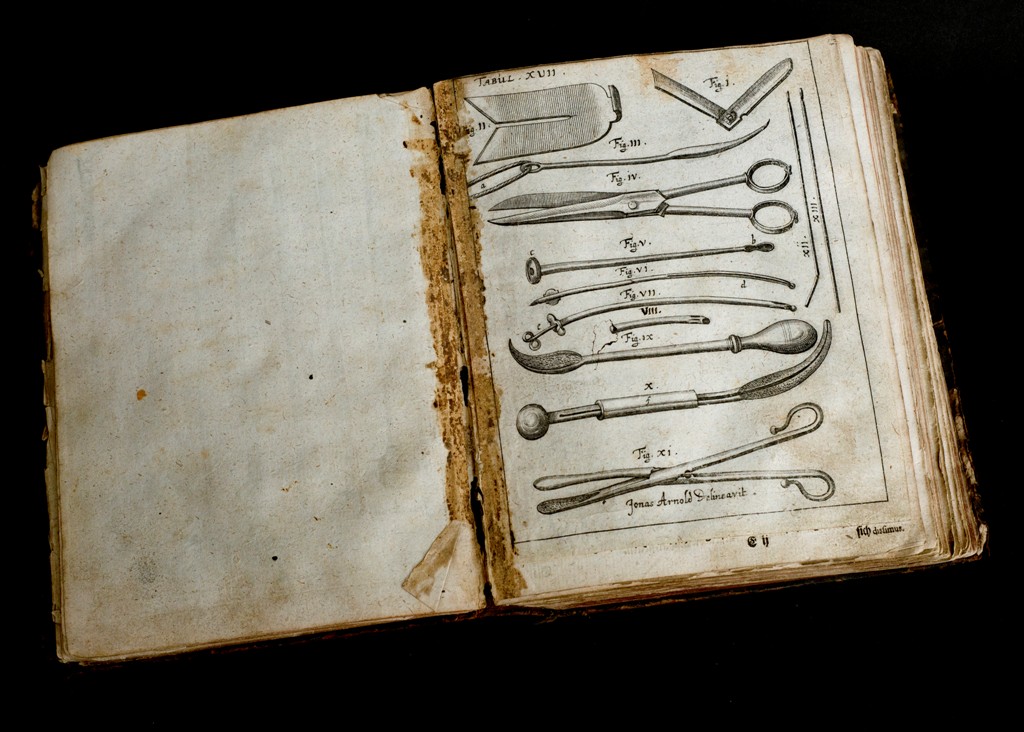 TABUL. XVII.
Fig. I.
Fig. II.
Fig. III.
a
Fig. IV.
Fig. V.
c
b
Fig. VI.
d
Fig. VII.
e
VIII.
Fig. IX
X.
f
Fig. XI.
XII.
XIII.
Jonas Arnold Delineavit.
E ij